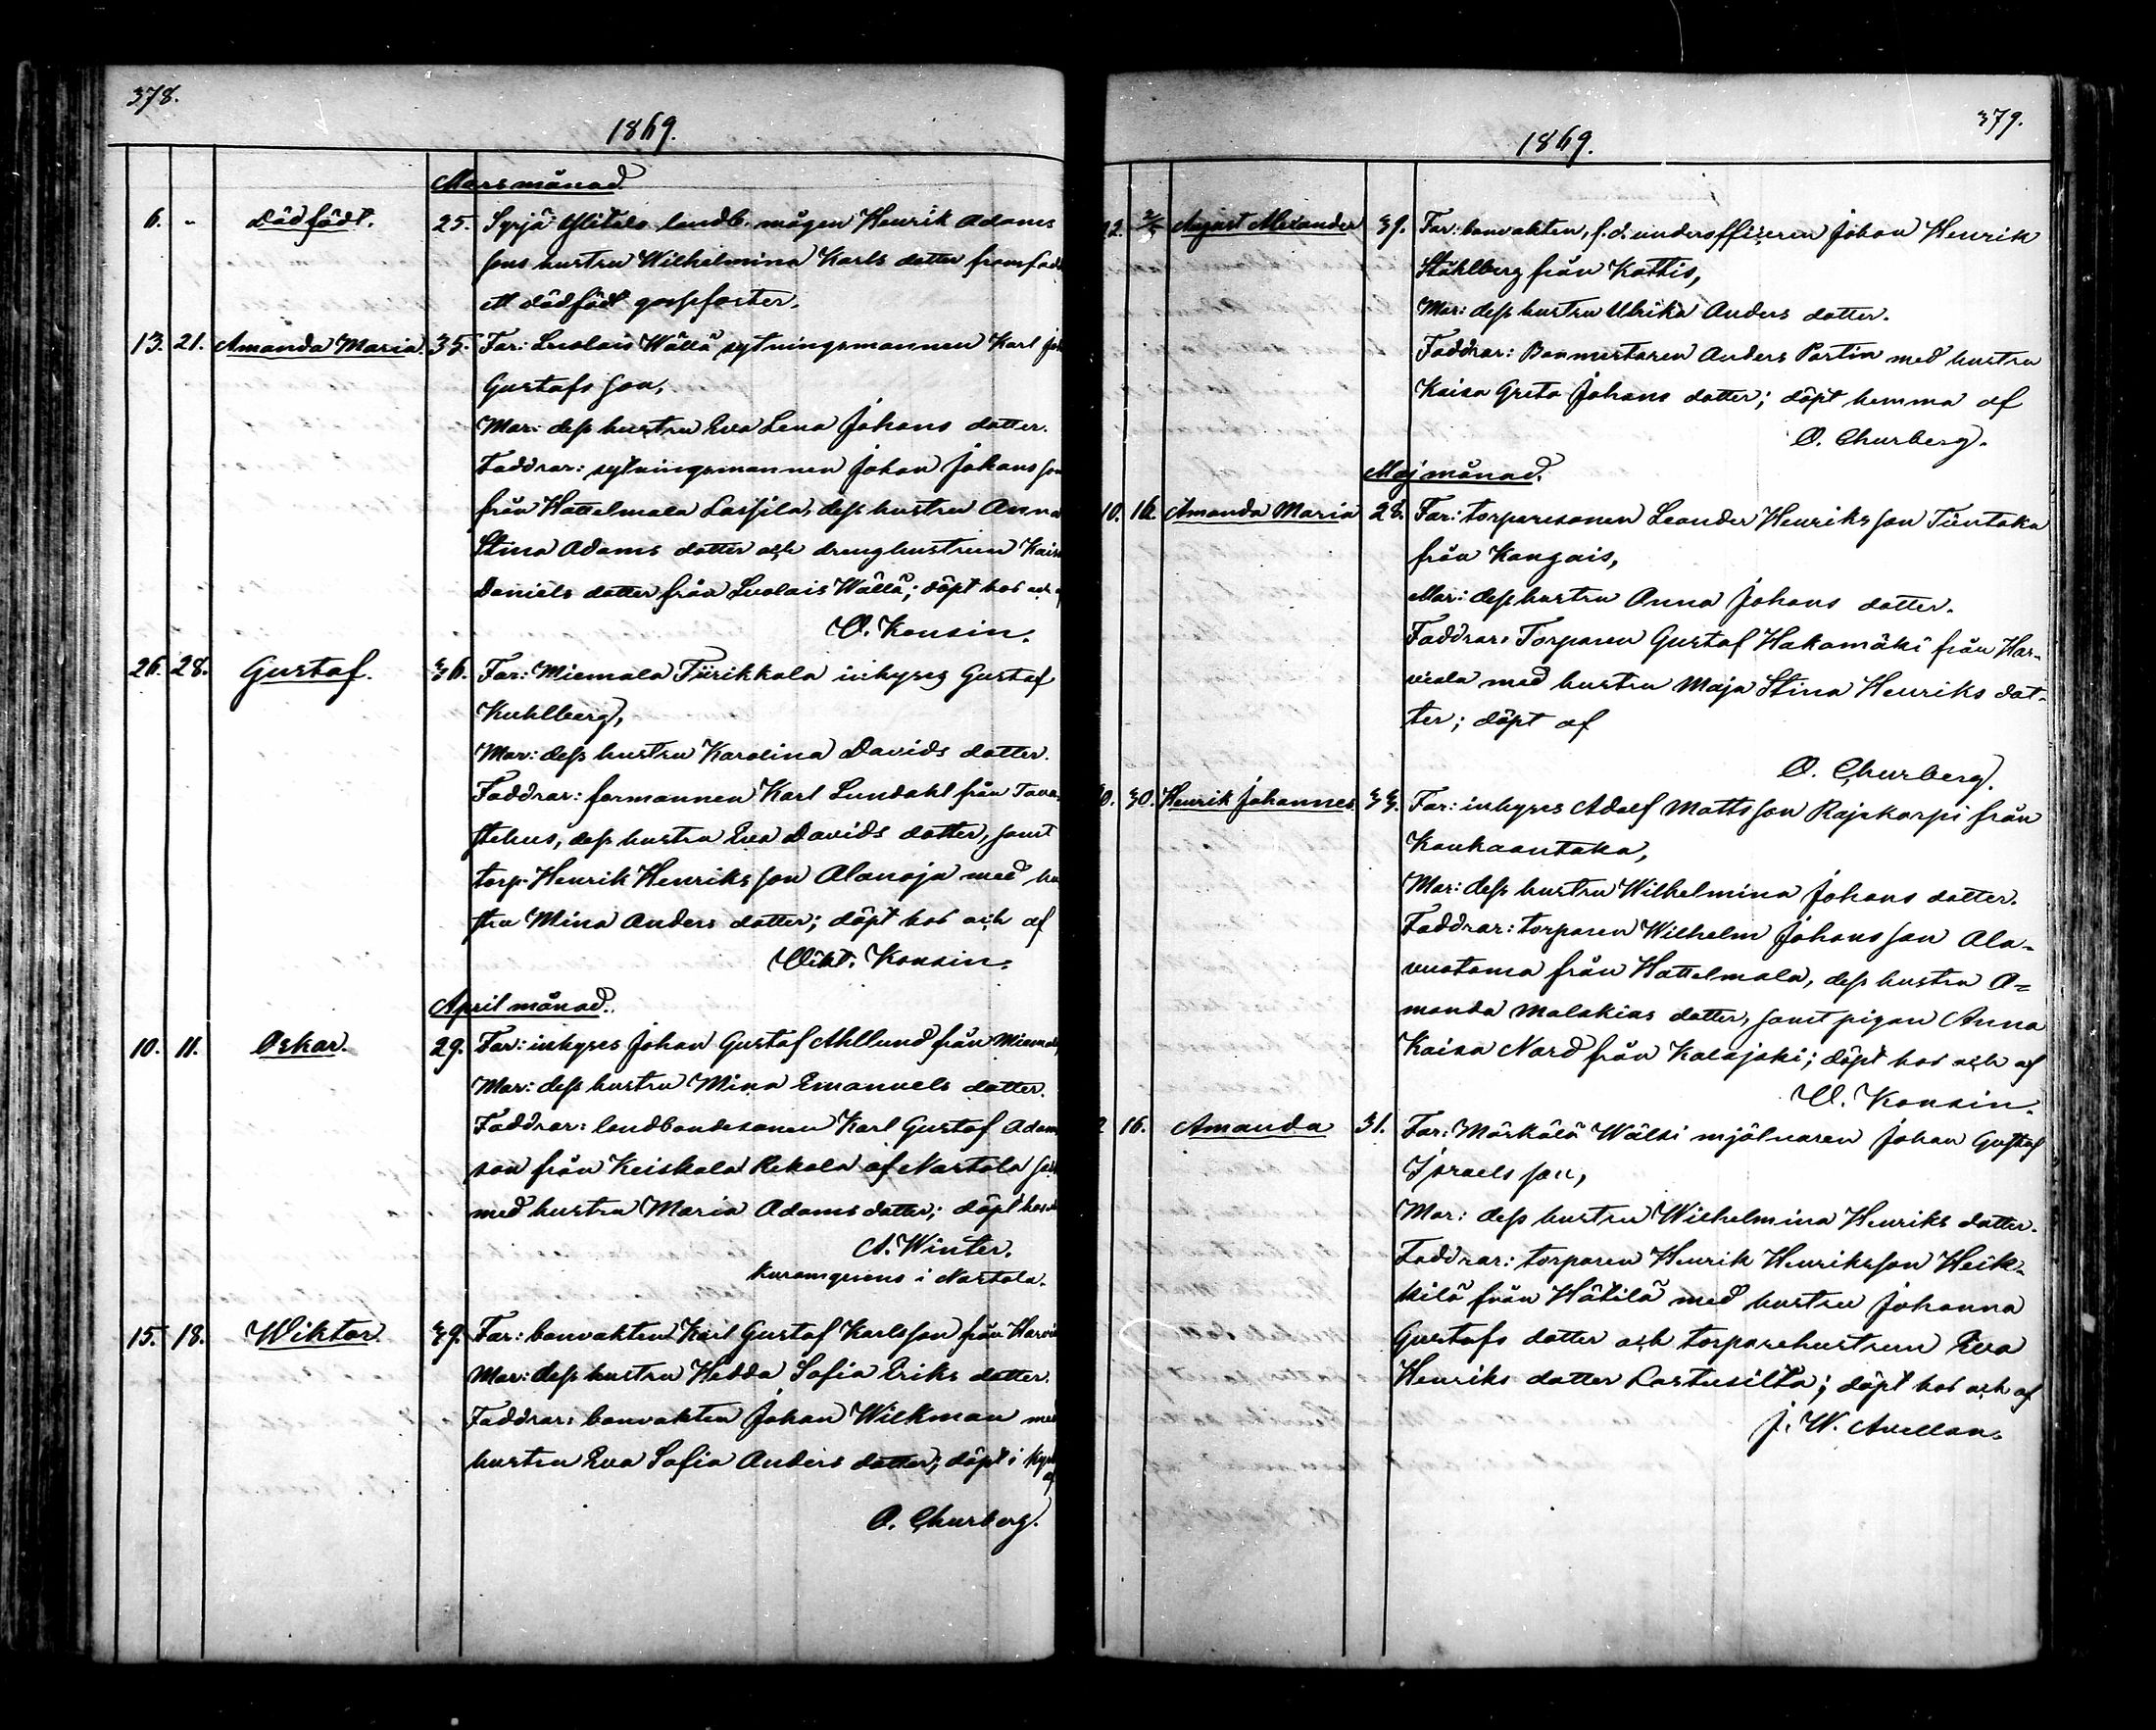 378.
1869.
Mars månad
6. - Dödfödt. 25. Syrjä Ylitalo landb. mågen Henrik Adams
sons hustru Wilhelmina Karls dotter framfödt
ett dödfödt gossefoster.
13. 21. Amanda Maria. 35. Far: Luolais Wällä sytningsmannen Karl Joh
Gustafsson,
Mor: dess hustru Eva Lena Johans dotter.
Faddrar: sytningsmannen Johan Johansson
från Hattelmala Lassila, dess hustru Anna
Stina Adams dotter och dräng hustrun Kaisa
Daniels dotter från Luolais Wällä; döpt hos och af
O. Konsin.
26. 28. Gustaf. 36. Far: Miemala Tiirikkala inhyses Gustaf
Kuhlberg,
Mor: dess hustru Karolina Davids dotter.
Faddrar: formannen Karl Lundahl från Tava-
stehus, dess hustru Eva Davids dotter, samt
torp. Henrik Henriksson Alanoja med hu
stru Mina Anders dotter; döpt hos och af
Vikt. Konsin.
April månad.
10. 11. Oskar. 29. Far: inhyses Johan Gustaf Ahllund från Miemala
Mor: dess hustru Mina Emanuels dotter.
Faddrar: landbondesonen Karl Gustaf Adam
son från Keiskala Rekola af Nastola
med hustru Maria Adams dotter; döpt hos
A. Winter.
i Nastola.
15. 18. Wiktor. 39. Far: banvakten Karl Gustaf Karlsson från Harvi
Mor: dess hustru Hedda Sofia Eriks dotter.
Faddrar: banvakten Johan Wiekman med
hustru Eva Sofia Anders dotter; döpt i kyrk
af
O. Churberg.
379.
1869.
22. August Alexander 39. Far: banvakten, f. d. underofficeren Johan Henrik
Ståhlberg från Kattis,
Mor: dess hustru Ulrika Anders dotter.
Faddrar: Banmästaren Anders Partin med hustru
Kaisa Greta Johans dotter; döpt hemma af
O. Churberg.
Maj månad.
10. 16. Amanda Maria 28. Far: torparesonen Leander Henriksson Tiintaka
från Kangais,
Mor: dess hustru Anna Johans dotter.
Faddrar: Torparen Gustaf Hakamäki från Har-
viala med hustru Maja Stina Henriks dot-
ter; döpt af
O. Churberg.
30. Henrik Johannes 33. Far: inhyses Adolf Mattsson Rajakorpi från
Kankaantaka,
Mor: dess hustru Wilhelmina Johans dotter.
Faddrar: torparen Wilhelm Johansson Ala-
vuotama från Hattelmala, dess hustru A=
manda Malakias dotter, samt pigan Anna
Kaisa Nord från Kalajoki; döpt hos och af
V. Konsin.
16. Amanda 31. Far: Märkälä Wälsi mjölnaren Johan Gustaf
Israelsson,
Mor: dess hustru Wilhelmina Henriks dotter.
Faddrar: torparen Henrik Henriksson Heik-
kilä från Hätilä med hustru Johanna
Gustafs dotter och torparehustrun Eva
Henriks dotter Lastusilta; döpt hos och af
J. W. Avellan.